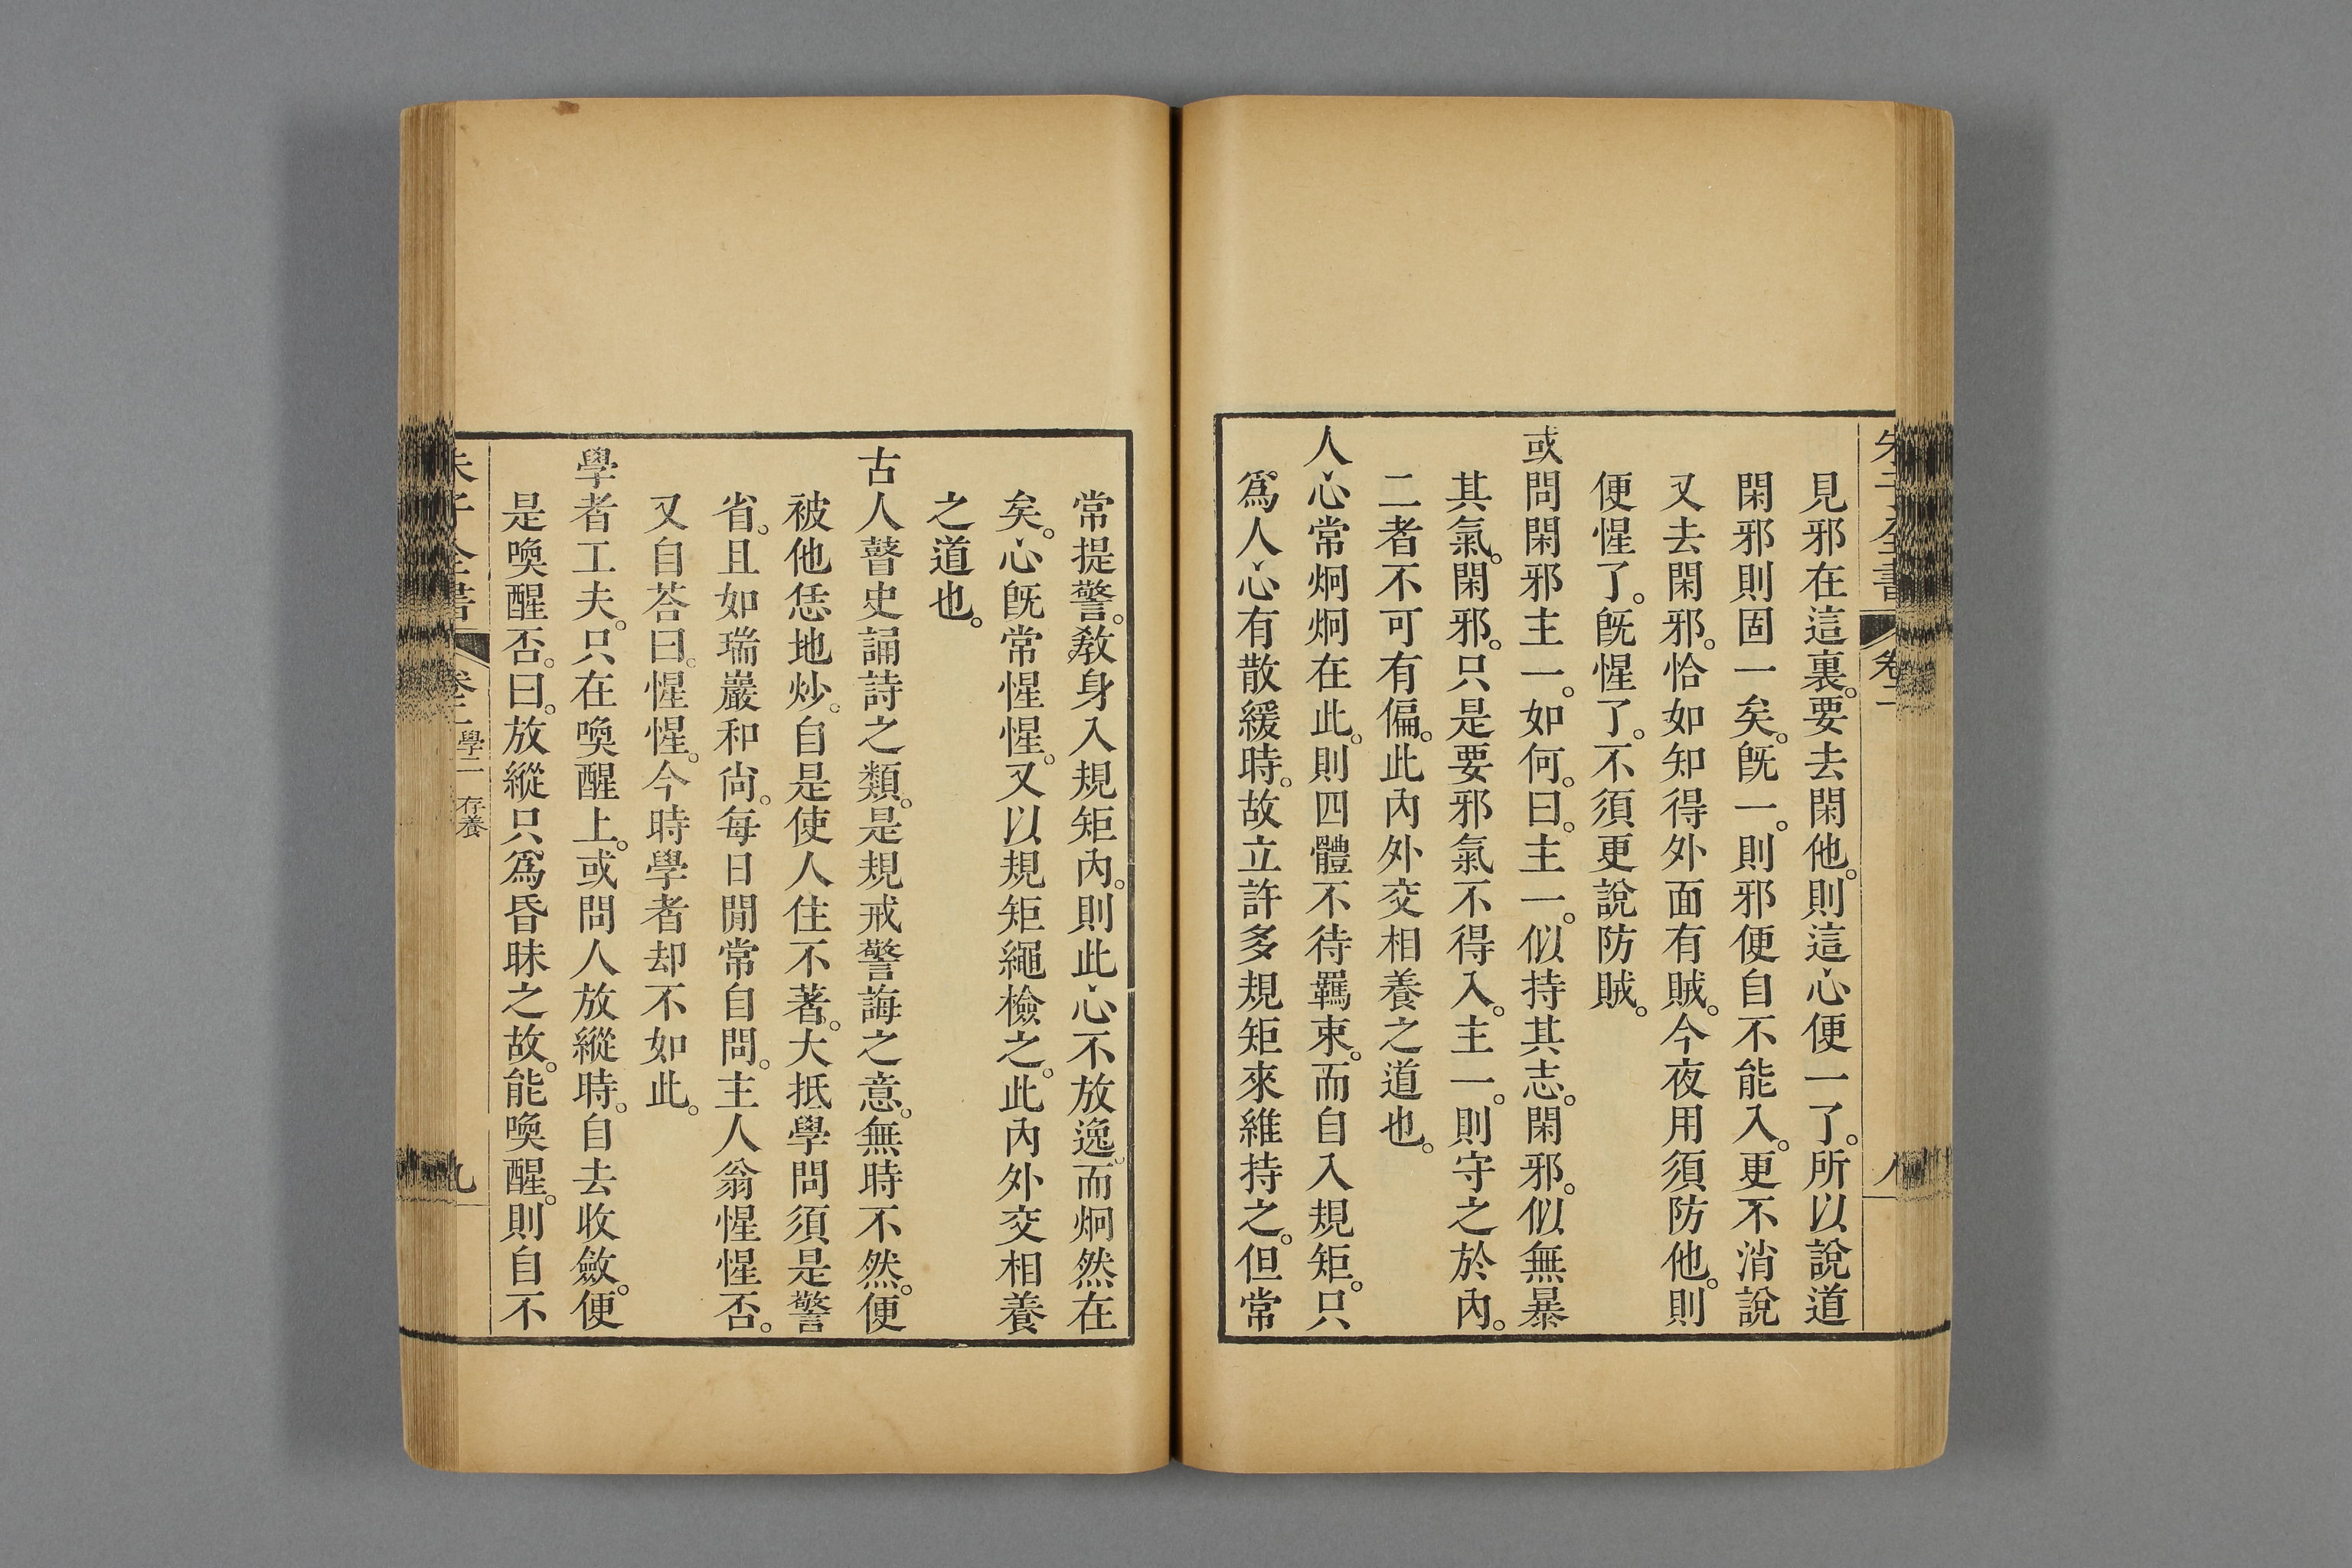 朱子全書 卷二 八
見邪在這裏。要去閑他。則這心便一了。所以說道
閑邪則固一矣。旣一。則邪便自不能入。更不消說
又去閑邪。恰如知得外面有賊。今夜用須防他。則
便惺了。旣惺了。不須更說防賊。
或問閑邪主一。如何。曰。主一。似持其志。閑邪。似無暴
其氣。閑邪。只是要邪氣不得入。主一。則守之於內。
二者不可有偏。此內外交相養之道也。
人心常炯炯在此。則四體不待羈束。而自入規矩。只
爲人心有散緩時。故立許多規矩來維持之。但常
常提警。敎身入規矩內。則此心不放逸。而炯然在
矣。心旣常惺惺。又以規矩繩檢之。此內外交相養
之道也。
古人瞽史誦詩之類。是規戒警誨之意。無時不然。便
被他恁地炒。自是使人住不著。大抵學問須是警
省。且如瑞巖和尙。每日閒常自問。主人翁惺惺否。
又自荅曰。惺惺。今時學者却不如此。
學者工夫。只在喚醒上。或問人放縱時。自去收斂。便
是喚醒否。曰。放縱只爲昏昧之故。能喚醒。則自不
朱子全書 卷二 學二 存養 九